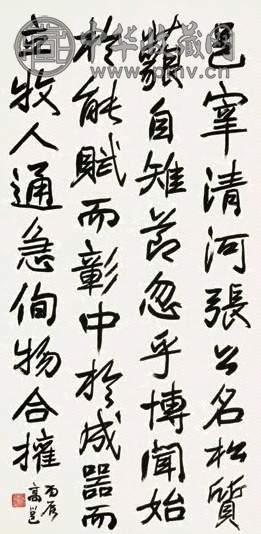 中华收藏网
www.pmv.cn
邑宰清河張公名松質
自雉節忽乎博聞始
於能賦而彰中於成器而
牧人通急徇物合擁
丙辰
高邕